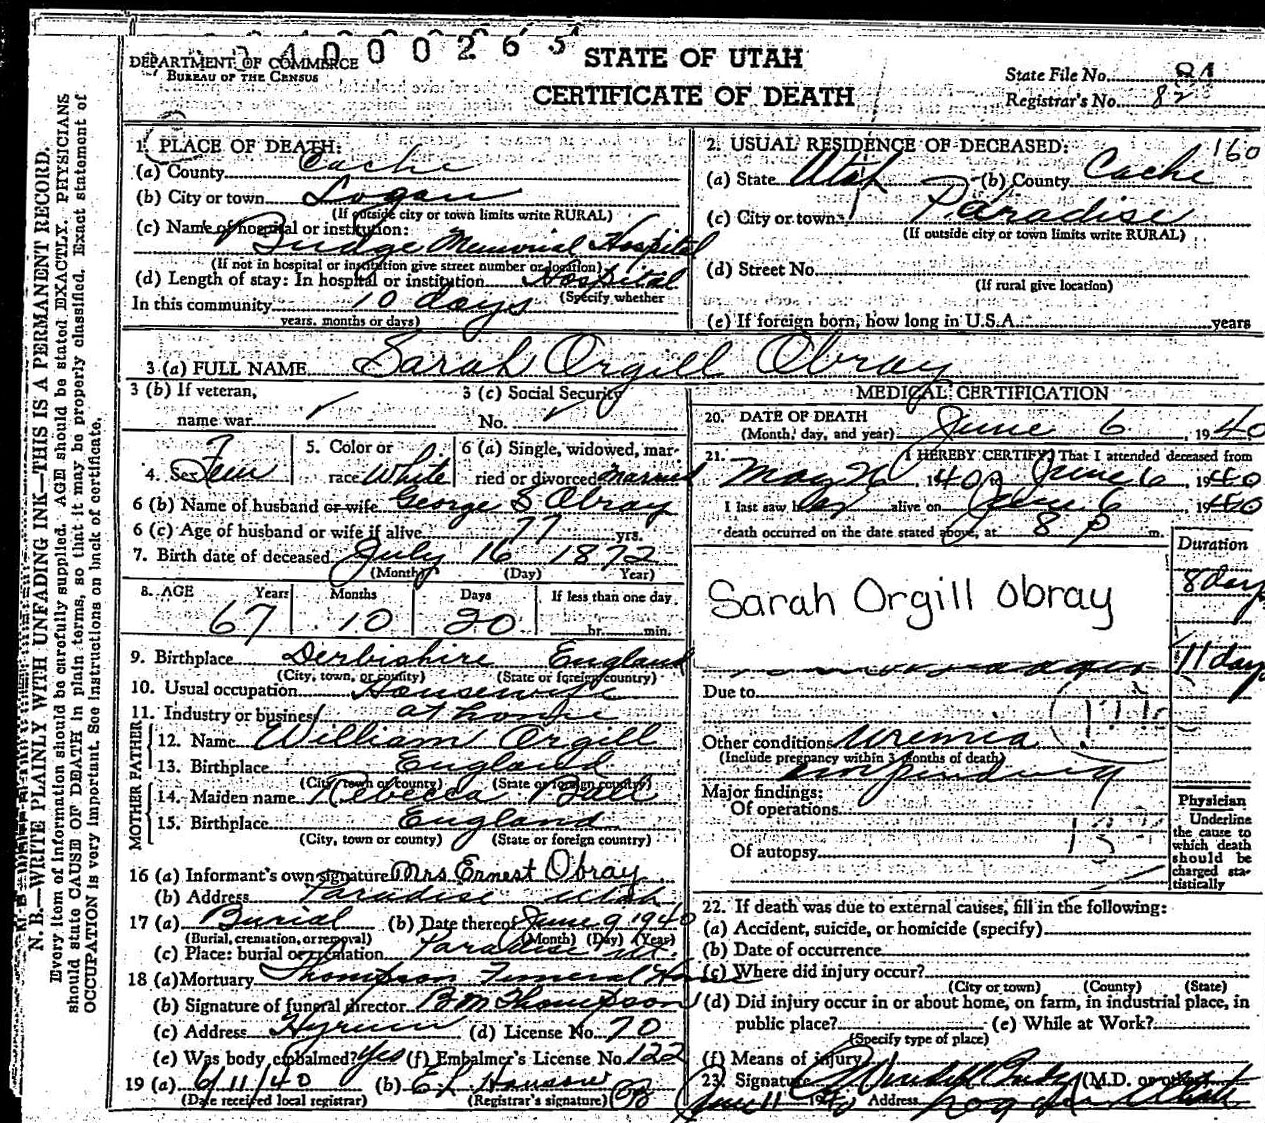 34000265
STATE OF UTAH
CERTIFICATE OF DEATH
DEPARTMENT OF COMMERCE
BUREAU OF THE CENSUS
State File No. 84
Registrar's No. 82
N. B.—WRITE PLAINLY WITH UNFADING INK—THIS IS A PERMANENT RECORD.
Every item of information should be carefully supplied. AGE should be stated EXACTLY. PHYSICIANS
should state CAUSE OF DEATH in plain terms, so that it may be properly classified. Exact statement of
OCCUPATION is very important. See instructions on back of certificate.
1. PLACE OF DEATH:
(a) County Cache
(b) City or town Logan
(If outside city or town limits write RURAL)
(c) Name of hospital or institution:
Budge Memorial Hospital
(If not in hospital or institution give street number or location)
(d) Length of stay: In hospital or institution Hospital
(Specify whether
In this community 10 days
years, months or days)
2. USUAL RESIDENCE OF DECEASED: 160
(a) State Utah (b) County Cache
(c) City or town Paradise
(If outside city or town limits write RURAL)
(d) Street No.
(If rural give location)
(e) If foreign born, how long in U.S.A. years
3 (a) FULL NAME Sarah Orgill Obray
3 (b) If veteran,
name war
3 (c) Social Security
No.
4. Sex Fem
5. Color or
race White
6 (a) Single, widowed, mar-
ried or divorced married
6 (b) Name of husband or wife George S Obray
6 (c) Age of husband or wife if alive 77 yrs.
7. Birth date of deceased July 16 1872
(Month) (Day) Year)
8. AGE Years Months Days If less than one day
67 10 20 hr. min.
9. Birthplace Derbishire England
(City, town, or county) (State or foreign country)
10. Usual occupation Housewife
11. Industry or business at home
FATHER
12. Name William Orgill
13. Birthplace England
(City, town or county) (State or foreign country)
MOTHER
14. Maiden name Rebecca Ball
15. Birthplace England
(City, town or county) (State or foreign country)
16 (a) Informant's own signature Mrs Ernest Obray
(b) Address Paradise Utah
17 (a) Burial (b) Date thereof June 9 1940
(Burial, cremation, or removal) (Month) (Day) (Year)
(c) Place: burial or cremation Paradise Ut.
18 (a) Mortuary Thompson Funeral Home
(b) Signature of funeral director B M Thompson
(c) Address Hyrum (d) License No. 70
(e) Was body embalmed? Yes (f) Embalmer's License No. 122
19 (a) 6/11/40 (b) E L Hanson
(Date received local registrar) (Registrar's signature)
MEDICAL CERTIFICATION
20. DATE OF DEATH
(Month, day, and year) June 6, 1940
21. I HEREBY CERTIFY, That I attended deceased from
May 26 1940, to June 6, 1940
I last saw her alive on June 6, 1940
death occurred on the date stated above, at 8 P m.
Duration
8 days
Sarah Orgill Obray
11 days
Due to
Other conditions Uremia
(Include pregnancy within 3 months of death)
Major findings:
Of operations
Of autopsy
Physician
Underline
the cause to
which death
should be
charged sta-
tistically
22. If death was due to external causes, fill in the following:
(a) Accident, suicide, or homicide (specify)
(b) Date of occurrence
(c) Where did injury occur?
(City or town) (County) (State)
(d) Did injury occur in or about home, on farm, in industrial place, in
public place? (e) While at Work?
(Specify type of place)
(f) Means of injury
23. Signature (M.D. or other)
June 11 1940 Address Logan Utah